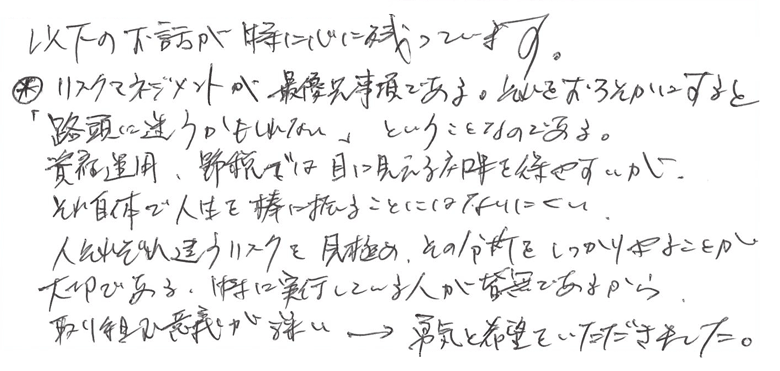 以下のお話が特に心に残っています。
※ リスクマネジメントが最優先事項である。それをおろそかにすると
「路頭に迷うかもしれない」ということなのである。
資産運用、節税では目に見える効果を得やすいが、
それ自体で人生を棒に振ることにはなりにくい。
人それぞれ違うリスクを見極め、その分析をしっかりやることが
大切である。特に実行している人が皆無であるから、
取り組む意義が深い → 勇気と希望をいただきました。